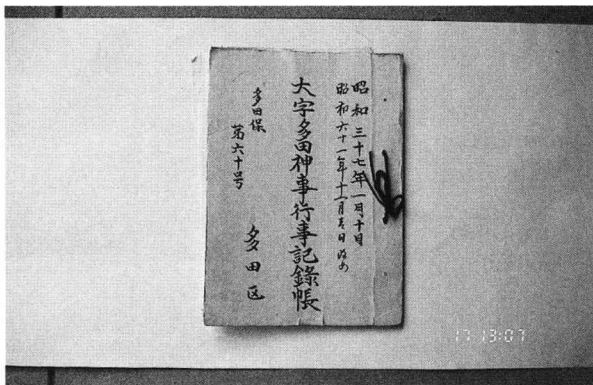 昭和三十七年一月十日
昭和六十一年十一月吉日改め
大字多田神事行事記錄帳
多田保
第六十号
多田区
17 13:07